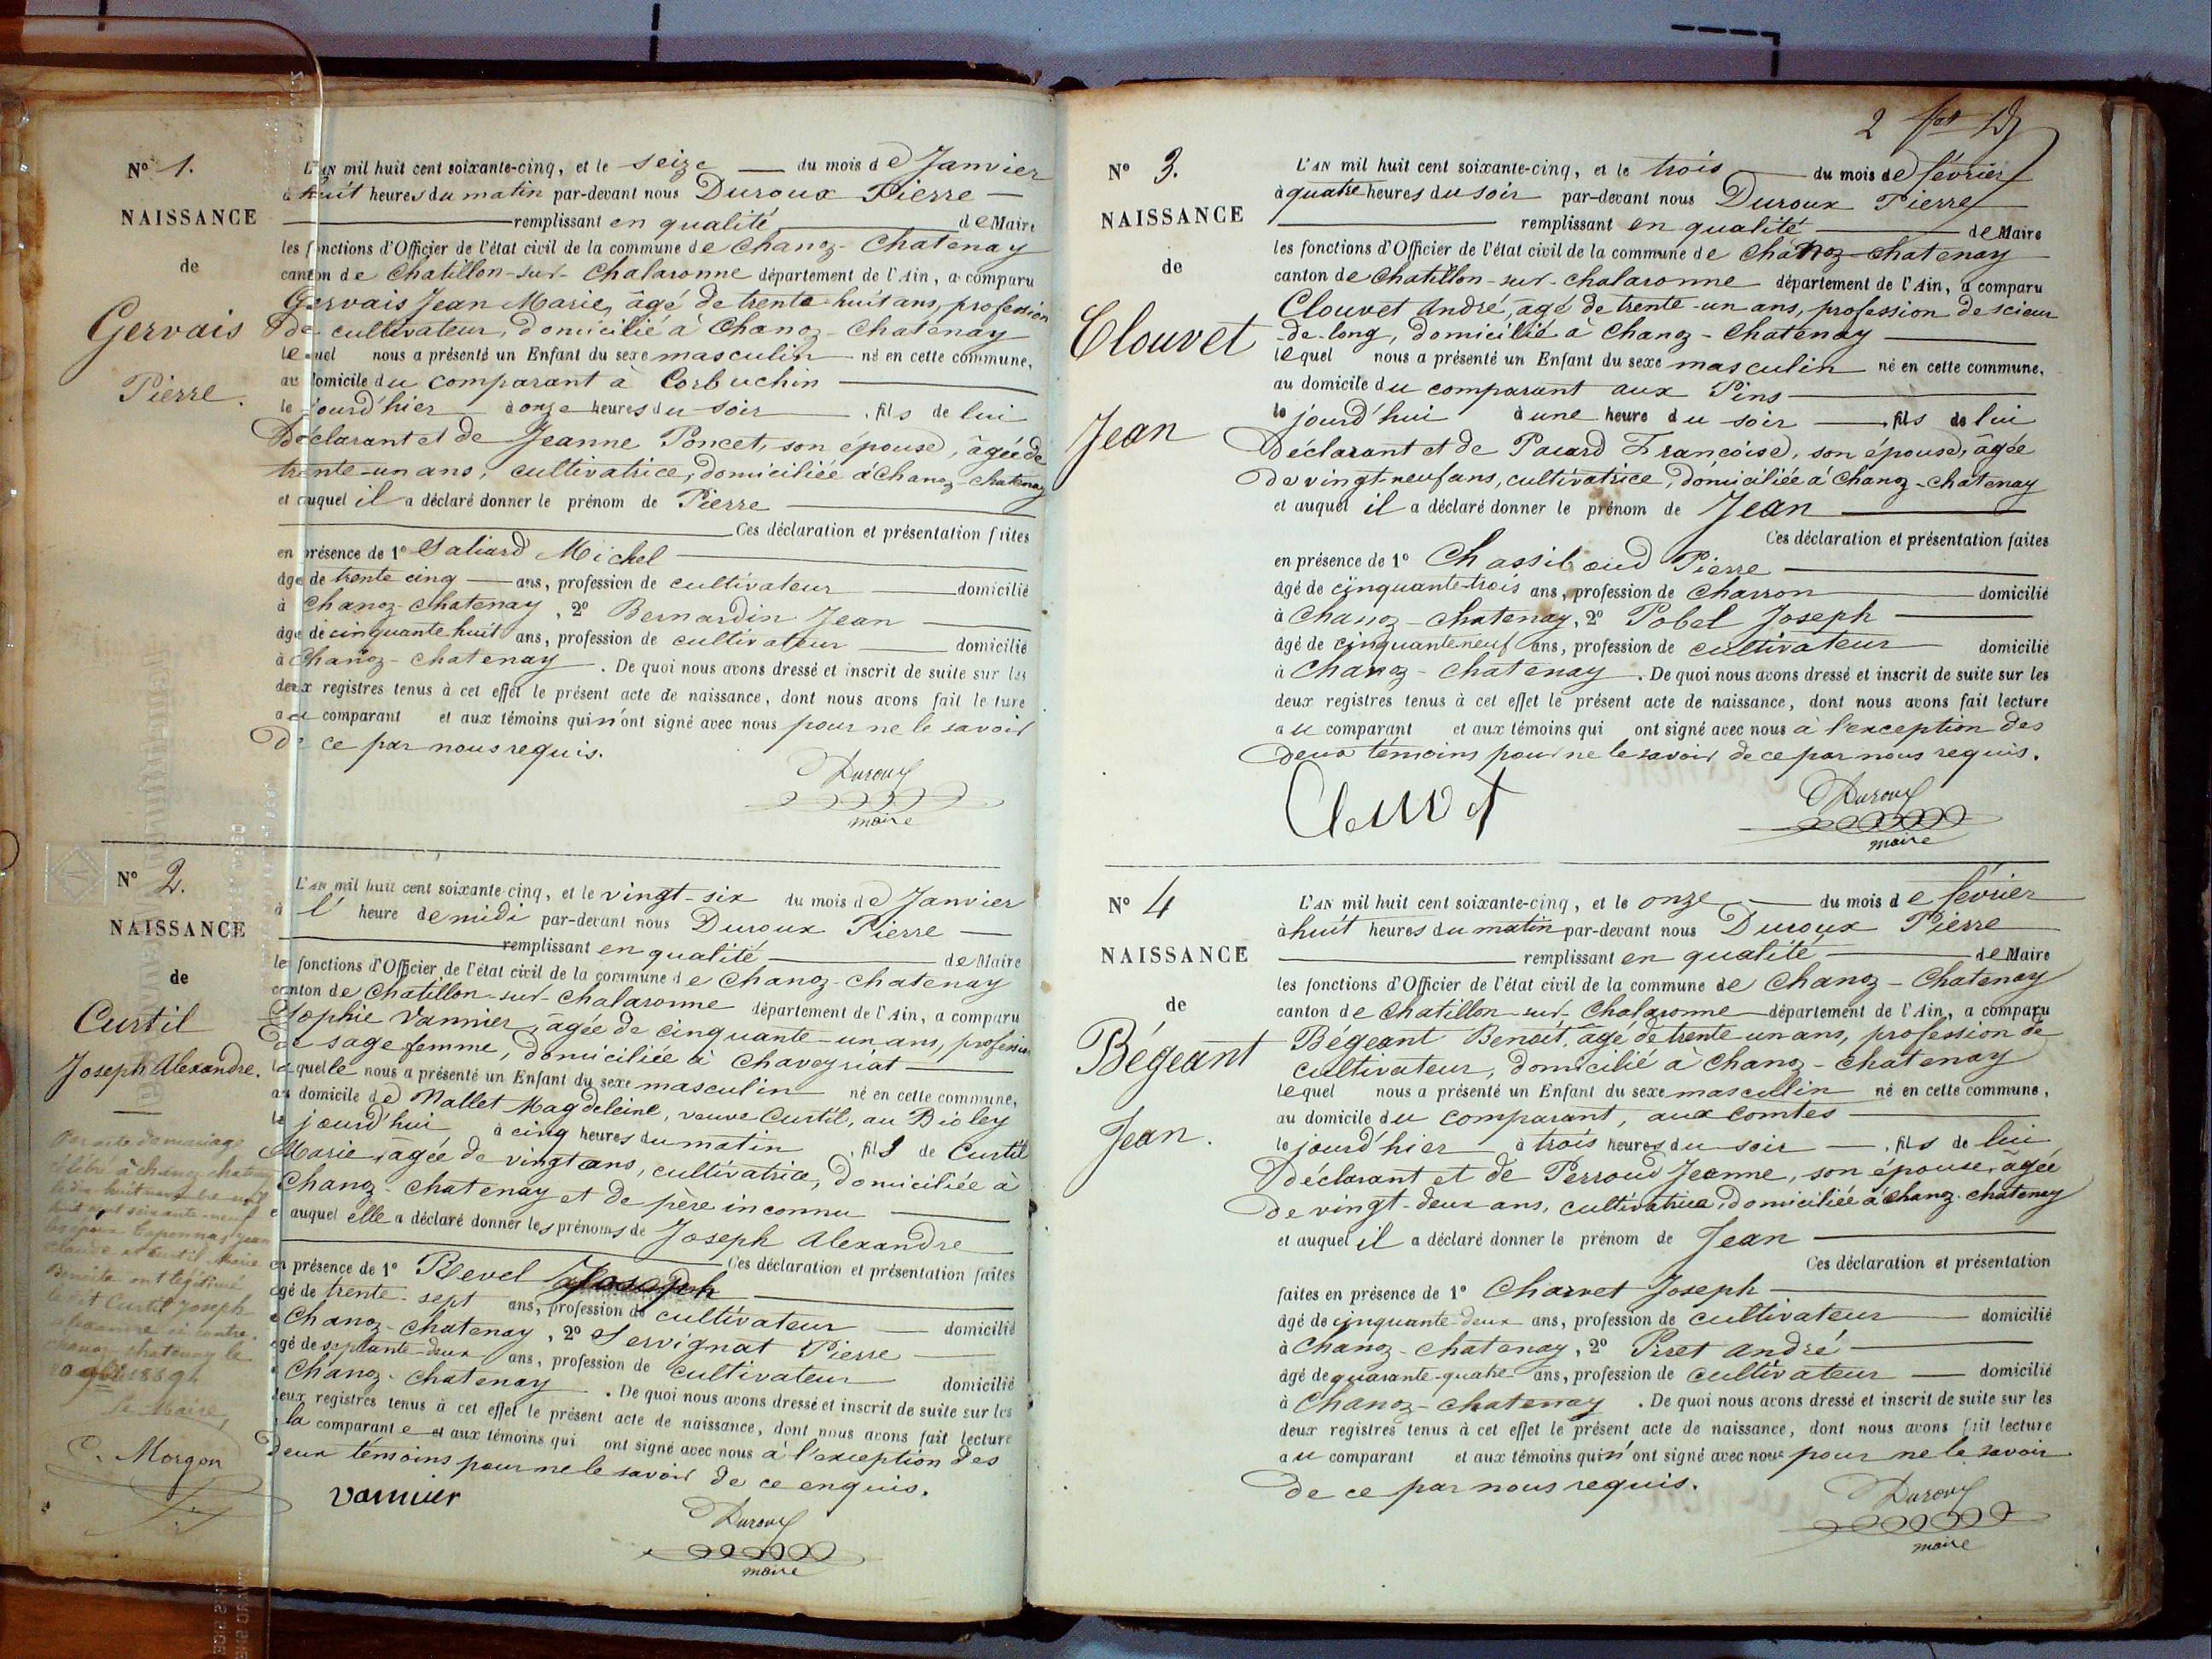 Nº 1.
NAISSANCE
de
Gervais
Pierre.
L'AN mil huit cent soixante-cinq, et le seize du mois de Janvier
à huit heures du matin par-devant nous Duroux Pierre
remplissant en qualité de Maire
les fonctions d'Officier de l'état civil de la commune de Chanoz-Chatenay
canton de Chatillon-sur-Chalaronne département de l'Ain, a comparu
Gervais Jean Marie, âgé de trente-huit ans, profession
de cultivateur, domicilié à Chanoz-Chatenay
lequel nous a présenté un Enfant du sexe masculin né en cette commune,
au domicile du comparant à Corbuchin
le jourd'hier à onze heures du soir , fils de lui
Déclarant et de Jeanne Poncet, son épouse, âgée de
trente-un ans, cultivatrice, domiciliée à Chanoz-chatenay
et auquel il a déclaré donner le prénom de Pierre
Ces déclaration et présentation faites
en présence de 1º Saliard Michel
âgé de trente cinq ans, profession de cultivateur domicilié
à Chanoz-Chatenay, 2º Bernardin Jean
âgé de cinquante huit ans, profession de cultivateur domicilié
à Chanoz-chatenay. De quoi nous avons dressé et inscrit de suite sur les
deux registres tenus à cet effet le présent acte de naissance, dont nous avons fait lecture
au comparant et aux témoins qui n'ont signé avec nous pour ne le savoir
De ce par nous requis.
Duroux
maire
Nº 2.
NAISSANCE
de
Curtil
Joseph Alexandre.
Par acte de mariage
célébré à chanoz chatenay
le dix huit
huit cent soixante-neuf
les époux Caponnas Jean
Claude et Curtil Marie
Benoite ont légitimé
le dit Curtil Joseph
alexandre ci contre.
chanoz chatenay le
1889.
Le Maire,
C. Morgon
L'AN mil huit cent soixante-cinq, et le vingt-six du mois de Janvier
à l' heure de midi par-devant nous Duroux Pierre
remplissant en qualité de Maire
les fonctions d'Officier de l'état civil de la commune de Chanoz-chatenay
canton de Chatillon-sur-Chalaronne département de l'Ain, a comparu
Sophie Vannier, âgée de cinquante-un ans, profession
de sage femme, domiciliée à Chaveyriat
laquelle nous a présenté un Enfant du sexe masculin né en cette commune,
au domicile de Mallet Magdeleine, veuve Curtil, au Bioley
le jourd'hui à cinq heures du matin , fils de Curtil
Marie, âgée de vingt ans, cultivatrice, domiciliée à
Chanoz-chatenay et de père inconnu
et auquel elle a déclaré donner les prénoms de Joseph Alexandre
Ces déclaration et présentation faites
en présence de 1º Revel Joseph
âgé de trente-sept ans, profession de cultivateur domicilié
à Chanoz-chatenay, 2º Servignat Pierre
âgé de septante-deux ans, profession de cultivateur domicilié
à Chanoz-chatenay. De quoi nous avons dressé et inscrit de suite sur les
deux registres tenus à cet effet le présent acte de naissance, dont nous avons fait lecture
à la comparante et aux témoins qui ont signé avec nous à l'exception des
deux témoins pour ne le savoir de ce enquis.
vannier
Duroux
maire
2
Nº 3.
NAISSANCE
de
Clouvet
Jean
L'AN mil huit cent soixante-cinq, et le trois du mois de février
à quatre heures du soir par-devant nous Duroux Pierre
remplissant en qualité de Maire
les fonctions d'Officier de l'état civil de la commune de Chanoz-chatenay
canton de Chatillon-sur-chalaronne département de l'Ain, a comparu
Clouvet André, âgé de trente-un ans, profession de scieur
-de-long, domicilié à Chanoz-Chatenay
lequel nous a présenté un Enfant du sexe masculin né en cette commune,
au domicile du comparant aux Pins
le jourd'hui à une heure du soir , fils de lui
Déclarant et de Pacard Francoise, son épouse, âgée
De vingt-neuf ans, cultivatrice, domiciliée à Chanoz-chatenay
et auquel il a déclaré donner le prénom de Jean
Ces déclaration et présentation faites
en présence de 1º Chassiboud Pierre
âgé de cinquante-trois ans, profession de Charron domicilié
à Chanoz-chatenay, 2º Pobel Joseph
âgé de cinquante neuf ans, profession de cultivateur domicilié
à Chanoz-chatenay. De quoi nous avons dressé et inscrit de suite sur les
deux registres tenus à cet effet le présent acte de naissance, dont nous avons fait lecture
au comparant et aux témoins qui ont signé avec nous à l'exception des
Deux témoins pour ne le savoir de ce par nous requis.
Clouvet
Duroux
maire
Nº 4
NAISSANCE
de
Bégeant
Jean.
L'AN mil huit cent soixante-cinq, et le onze du mois de février
à huit heures du matin par-devant nous Duroux Pierre
remplissant en qualité de Maire
les fonctions d'Officier de l'état civil de la commune de Chanoz-Chatenay
canton de Chatillon-sur-Chalaronne département de l'Ain, a comparu
Bégeant Benoit, âgé de trente-un ans, profession de
cultivateur, domicilié à Chanoz-chatenay
lequel nous a présenté un Enfant du sexe masculin né en cette commune,
au domicile du comparant, aux Comtes
le jourd'hier à trois heures du soir , fils de lui
Déclarant et de Perroud Jeanne, son épouse, âgée
De vingt-deux ans, cultivatrice, domiciliée à Chanoz-chatenay
et auquel il a déclaré donner le prénom de Jean
Ces déclaration et présentation
faites en présence de 1º Charvet Joseph
âgé de cinquante-deux ans, profession de cultivateur domicilié
à Chanoz-chatenay, 2º Piret André
âgé de quarante-quatre ans, profession de cultivateur domicilié
à Chanoz-chatenay. De quoi nous avons dressé et inscrit de suite sur les
deux registres tenus à cet effet le présent acte de naissance, dont nous avons fait lecture
au comparant et aux témoins qui n'ont signé avec nous pour ne le savoir
De ce par nous requis.
Duroux
maire